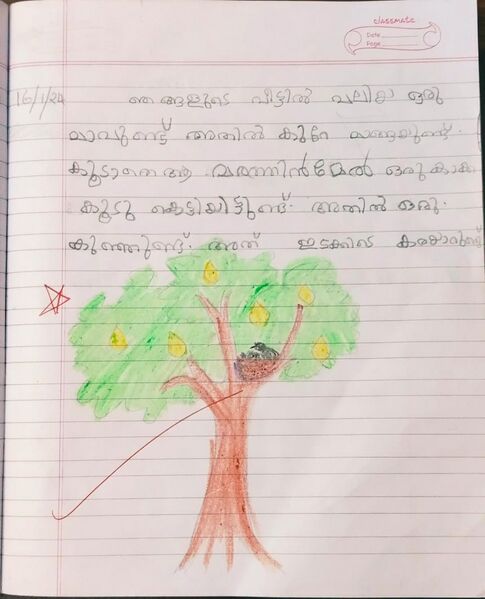 classmate
Date
Page
16/1/24 ഞങ്ങളുടെ വീട്ടിൽ വലിയ ഒരു
മാവുണ്ട് അതിൽ കുറേ മാങ്ങയുണ്ട്.
കൂടാതെ ആ മരത്തിൻമേൽ ഒരു കാക്ക
കൂടു കെട്ടിയിട്ടുണ്ട്. അതിൽ ഒരു
കുഞ്ഞുണ്ട്. അത് ഇടക്കിടെ കരയാറുണ്ട്